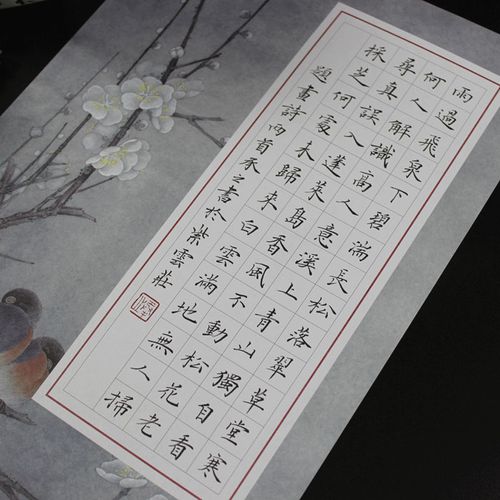 雨過飛泉下碧湍長松落翠草堂寒
何人解識高人意溪上青山獨自看
尋真誤入蓬萊島香風不動松花老
採芝何處未歸來白雲滿地無人掃
題畫詩兩首承之書於紫雲莊